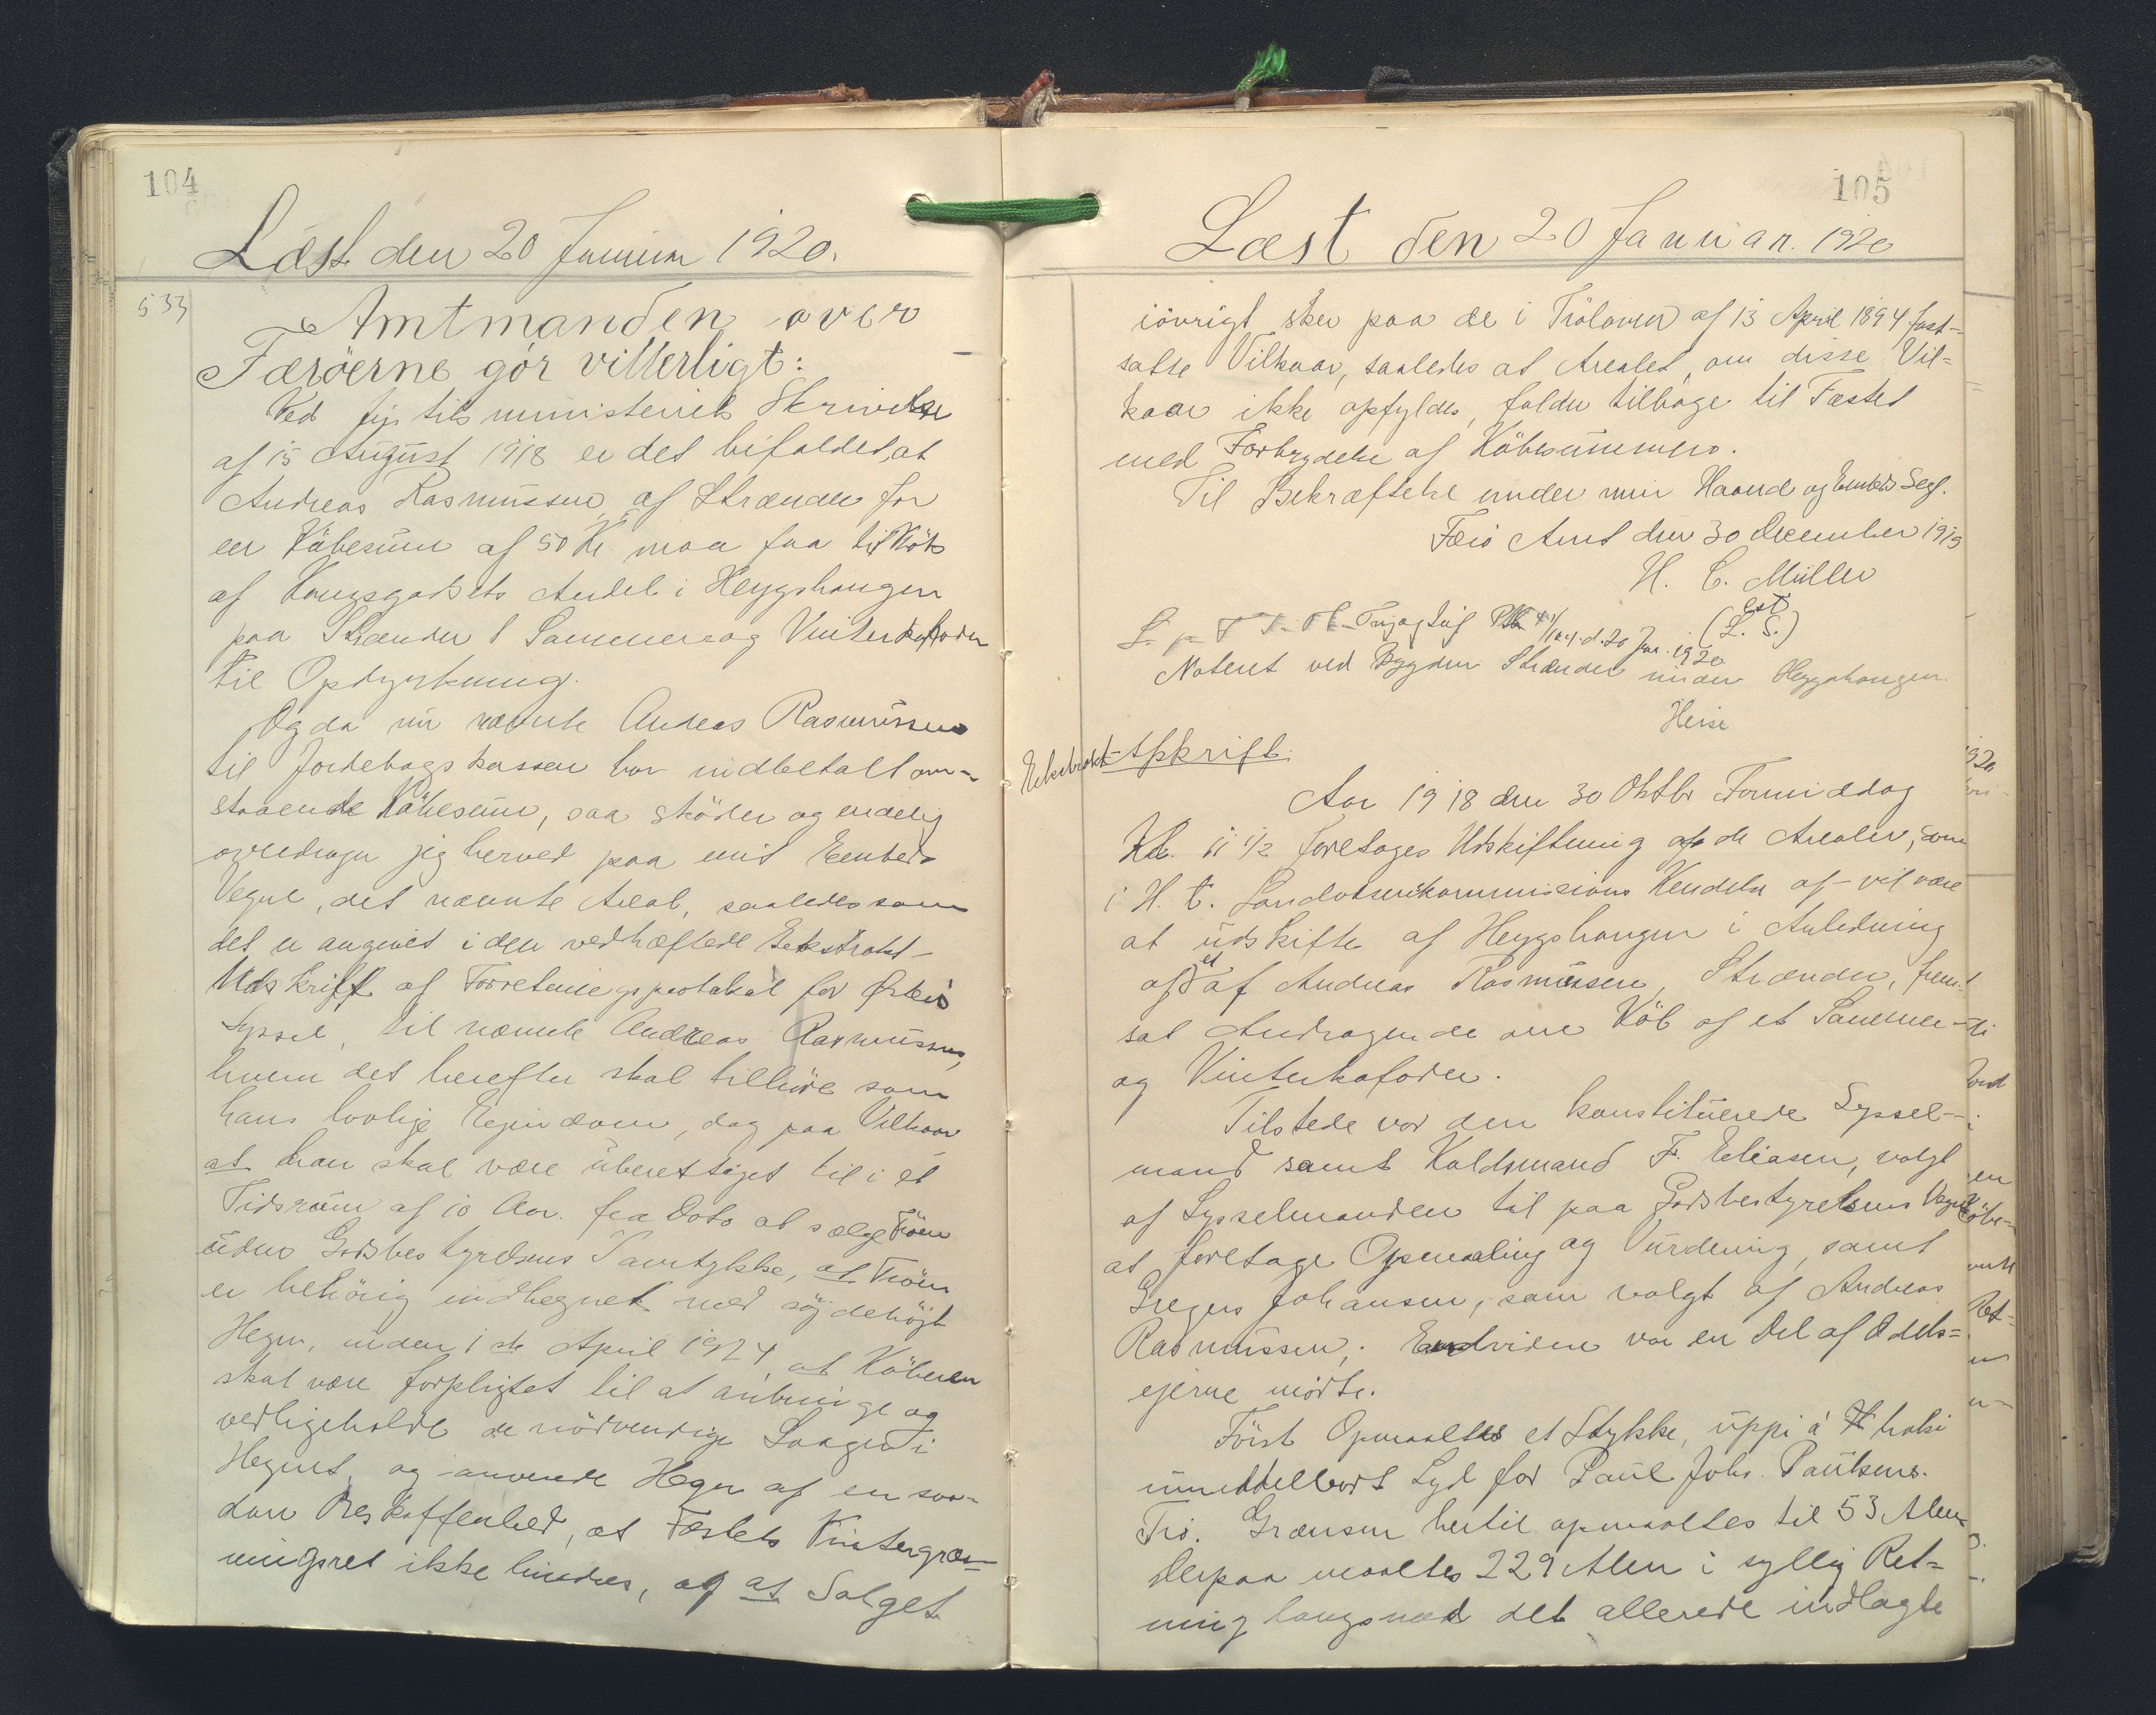 104
Læst den 20 Januar 1920.
533
Amtmanden over
Færöerne gör vitterligt:
Ved Justitsministeriets Skrivelse
af 15 August 1918 er det bifaldet, at
Andreas Rasmussen af Strænder for
en Köbesum af 50 Kr. maa faa til Köb
af Kongsgodsets Andel i Heygshaugen
paa Strænder 1 Sommer og Vinterkofoder
til Opdyrkning.
Og da nu nævnte Andreas Rasmussen
til Jordebogskassen har indbetalt om-
staaende Köbesum, saa sköder og endelig
overdrager jeg herved paa mit Embeds
Vegne, det nævnte Areal, saaledes som
det er angivet i den vedhæftede Eekstrakt-
Udskrift af Forretningsprotokol for Österö
Syssel, til nævnte Andreas Rasmussen,
hvem det herefter skal tilhöre som
hans lovlige Ejendom, dog paa Vilkaar
at han skal være uberettiget til i et
Tidsrum af 10 Aar fra Dato at sælge Tröen
uden Godsbestyrelsens Samtykke, at Tröen
er behörig indhegnet med söjdehöjt
Hegn, inden 1ste April 1924, at Köberen
skal være forpligtet til at anbringe og
vedligeholde de nödvendige Laager i
Hegnet, og anvende Hegn af en saa-
dan Beskaffenhed, at Fæstets Vintergræs-
ningsret ikke hindres, og at Salget
105
Læst den 20 Januar. 1920
iövrigt sker paa de i Tröloven af 13 April 1894 fast-
satte Vilkaar, saaledes at Arealet, om disse Vil=
kaar ikke opfyldes, falder tilbage til Fæstet
med Forbrydelse af Köbesummen.
Til Bekræftelse under min Haand og Embeds Segl.
Færö Amt den 30 December 1919
H. C. Müller
est
(L. S.)
104. d. 20 Jan. 1920
Noteret ved Bygden Strænder under Heygshaugen
Heise
Eekstrakt-Afskrift.
Aar 1918 den 30 Oktbr Formiddag
Kl. 11 1/2 foretoges Udskiftning af de Arealer, som
i H. t. Landvæsenskommissions Kendelse af - vil være
at udskifte af Heygshaugen i Anledning
af et af Andreas Rasmussen, Strænder, frem-
sat Andragende om Köb af et Sommer-
og Vinterkofoder.
Tilstede var den konstituerede Syssel-
mand samt Kaldsmand F. Eliasen, valgt
af Sysselmanden til paa Godsbestyrelsens Vegne
at foretage Opmaaling og Vurdering, samt
Gregers Johansen, som valgt af Andreas
Rasmussen; Endvidere var en Del af Odels=
ejerne mödte.
Först Opmaaltes et Stykke, uppi á halsi
umiddelbart Syd for Paul Johs. Paulsens.
Trö. Grænsen hertil opmaaltes til 53 Alen
Derpaa maaltes 229 Alen i sydlig Ret=
ning langsmed det allerede indlagte